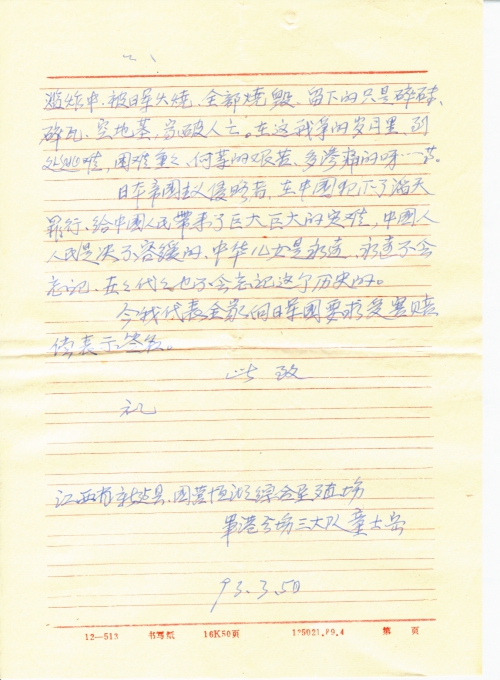 炸中.被日军火烧.全部烧毁.留下的只是碎砖.
碎瓦.空地基,家破人亡。在这战争的岁月里.到
处逃难,困难重之.何等的艰苦、多渗痛的呀一苦。
日本帝国主义侵略者,在中国犯下了滔天
罪行.给中国人民带来了巨大巨大的灾难,中国人
人民是决不容缓的.中华儿女是永远.永远不会
忘记.在之代之也不会忘记这个历史的。
今我代表全家向日军国要求受害赔
偿表示
此致
礼
江西省新建县.国营恒湖综合垦殖场
分场三大队童士岳
93.3.50
12—513 书写纸 16K80页 1?5021.89.4 第 页